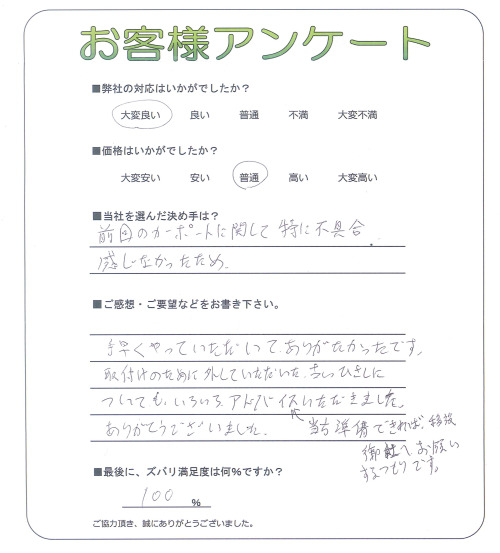 お客様アンケート
■弊社の対応はいかがでしたか？
大変良い 良い 普通 不満 大変不満
■価格はいかがでしたか？
大変安い 安い 普通 高い 大変高い
■当社を選んだ決め手は？
前回のカーポートに関して特に不具合
感じなかったため.
■ご感想・ご要望などをお書き下さい。
手早くやっていただいて、ありがたかったです。
取付けのために外していただいた、ちょっひさしに
ついても、いろいろ、アドバイスいただきました。
ありがとうございました。
当方準備できれば、
御社へお願い
するつもりです。
■最後に、ズバリ満足度は何%ですか？
100 %
ご協力頂き、誠にありがとうございました。